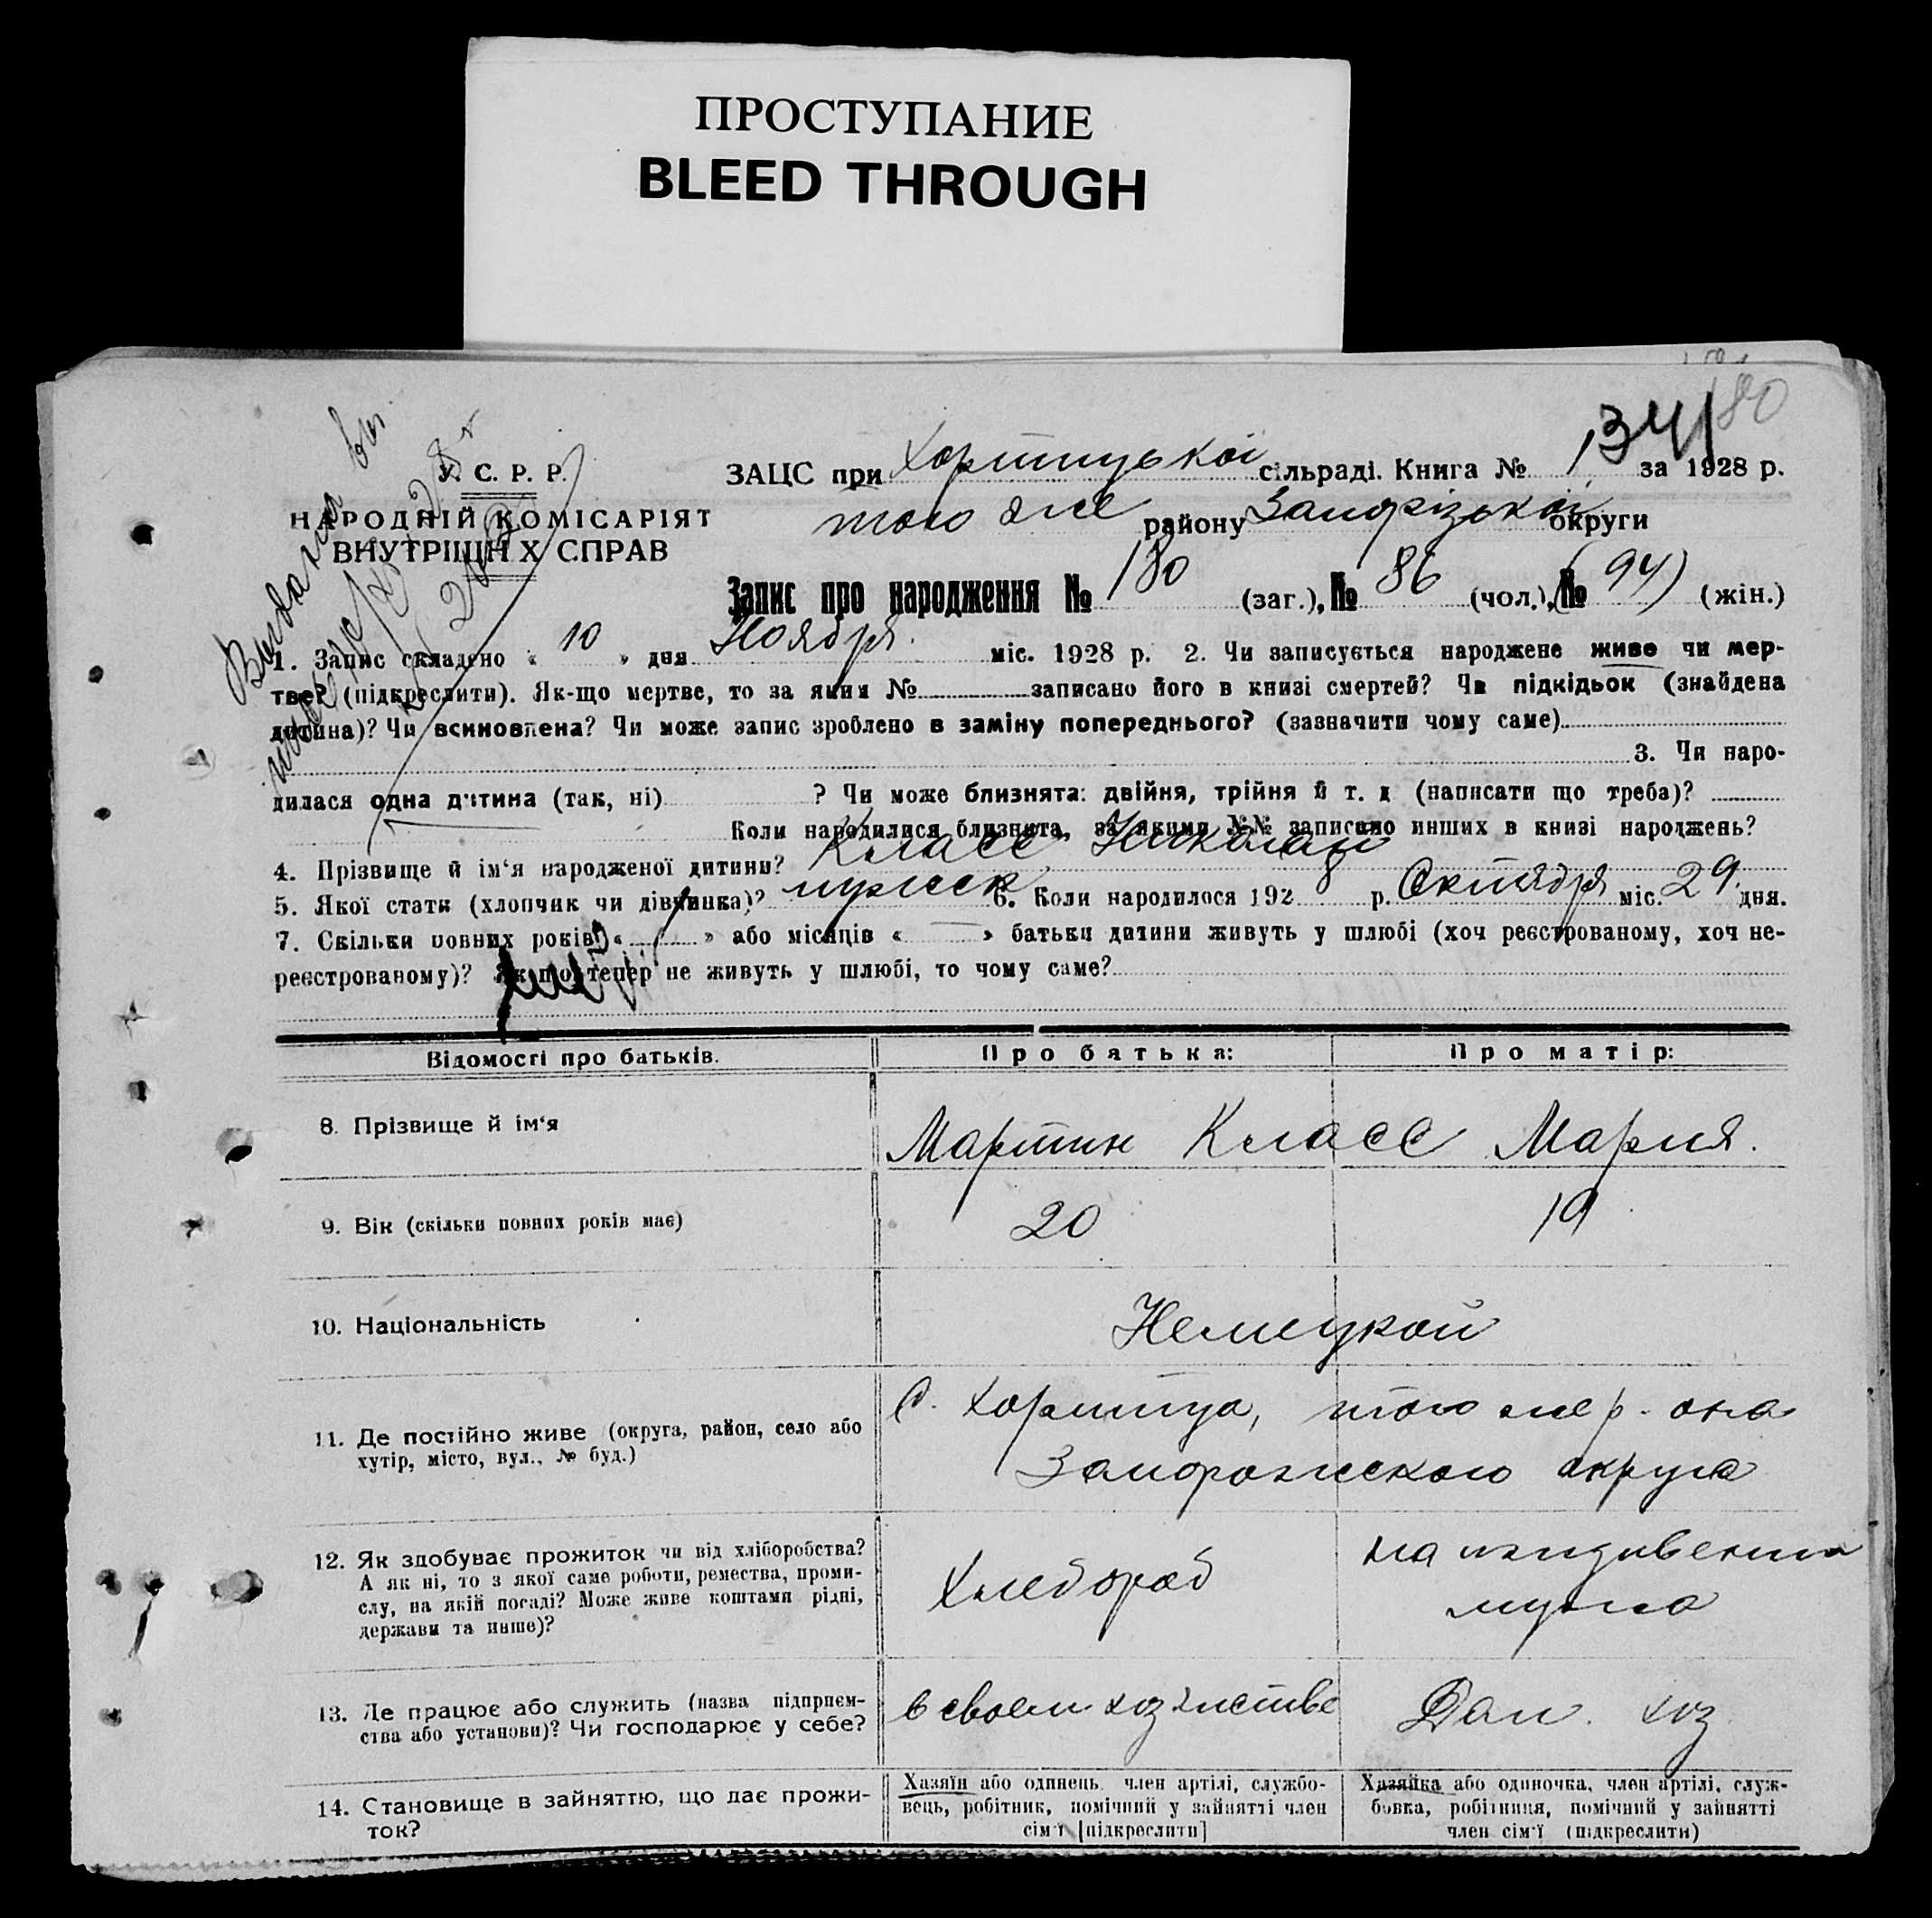 ПРОСТУПАНИЕ
BLEED THROUGH
180
134
У. С. Р. Р.
НАРОДНІЙ КОМІСАРІЯТ
ВНУТРІШНІХ СПРАВ
ЗАЦС при Хортицької сільраді. Книга № 1 за 1928 р.
того же району Запорізькой округи
Запис про народження № 180 (заг.), № 86 (чол.), (№ 94) (жін.)
1. Запис складено « 10 » дня Ноября міс. 1928 р. 2. Чи записується народжене живе чи мер-
тве? (підкреслити). Як-що мертве, то за яким № записано його в книзі смертей? Чи підкідьок (знайдена
дитина)? Чи всиновлена? Чи може запис зроблено в заміну попереднього? (зазначити чому саме)
3. Чи наро-
дилася одна дитина (так, ні) ? Чи може близнята: двійня, трійня й т. д (написати що треба)?
Коли народилися близнята, за якими №№ записано инших в книзі народжень?
4. Прізвище й ім'я народженої дитини? Класс Николай
5. Якої стати (хлопчик чи дівчинка)? мужск 6. Коли народилося 1928 р. Октября міс. 29 дня.
7. Скільки повних років « 1 » або місяців « — » батьки дитини живуть у шлюбі (хоч реєстрованому, хоч не-
реєстрованому)? Як що тепер не живуть у шлюбі, то чому саме?
Відомості про батьків.
Про батька:
Про матір:
8. Прізвище й ім'я
Мартин Класс Мария.
9. Вік (скільки повних років має)
20
19
10. Національність
Немецкой
11. Де постійно живе (округа, район, село або
хутір, місто, вул., № буд.)
С. Хортица, того же р-она
Запорожского округа
12. Як здобуває прожиток чи від хліборобства?
А як ні, то з якої саме роботи, ремества, проми-
слу, на якій посаді? Може живе коштами рідні,
держави та инше)?
Хлебороб
на иждивении
мужа
13. Де працює або служить (назва підприєм-
ства або установи)? Чи господарює у себе?
в своем хозяистве
Дом. хоз.
14. Становище в зайняттю, що дає прожи-
ток?
Хазяїн або одинець, член артілі, службо-
вець, робітник, помічний у зайнятті член
сім'ї [підкреслити]
Хазяйка або одиночка, член артілі, служ-
бовка, робітниця, помічний у зайнятті
член сім'ї (підкреслити)